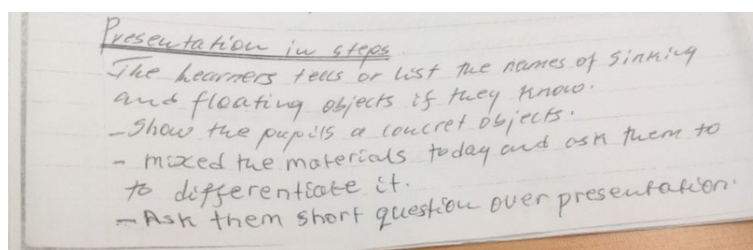 Presentation in steps
The hearners tells or list the names of Sinking
and floating objects if they know.
- Show the pupils a concret objects.
- mixed the materials today and ask them to
to differentiate it.
- Ask them short question over presentation.